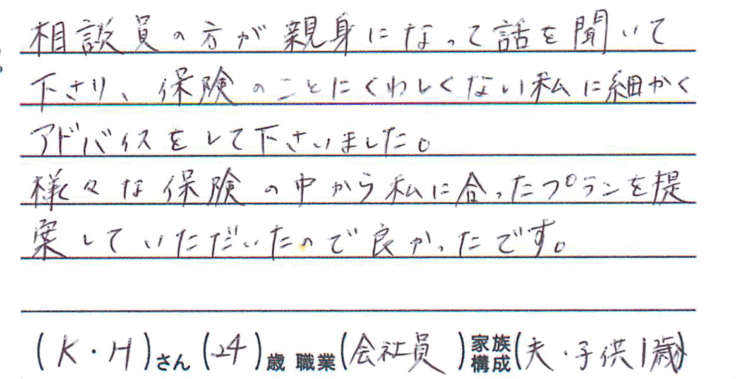 相談員の方が親身になって話を聞いて
下さり、保険のことにくわしくない私に細かく
アドバイスをして下さいました。
様々な保険の中から私に合ったプランを提
案していただいたので良かったです。
(K・H)さん(24)歳 職業(会社員)家族構成(夫・子供1歳)